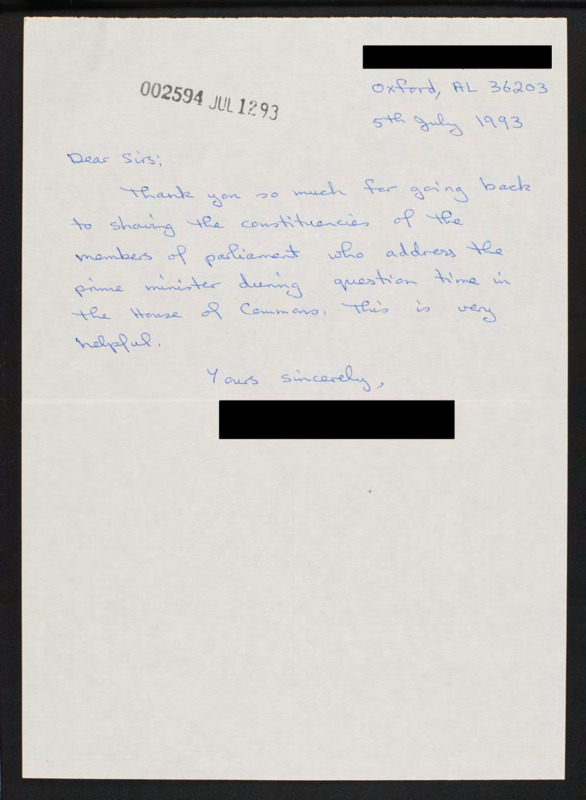 Oxford, AL 36203
002594 JUL 12 93
5th July 1993
Dear Sirs;
Thank you so much for going back
to showing the constituencies of the
members of parliament who address the
prime minister during question time in
the House of Commons. This is very
helpful.
Yours sincerely,